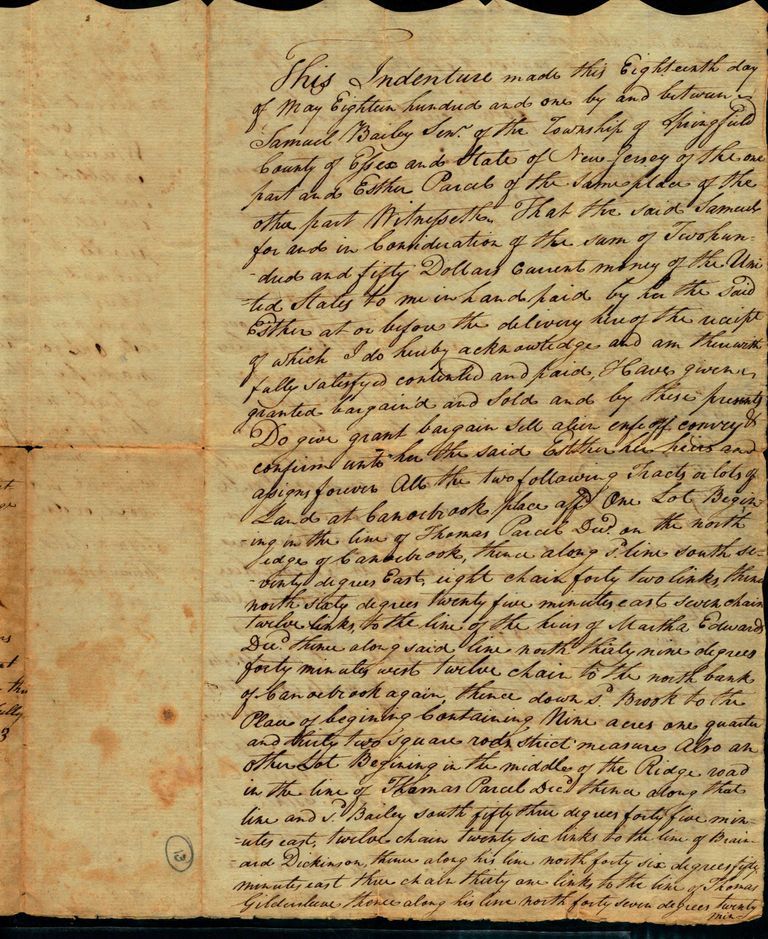 This Indenture made this Eighteenth day
of May Eighteen hundred and one by and between
Samuel Bailey Senr. of the Township of Springfield
County of Essex and State of New Jersey of the one
part and Esther Parcel of the same place of the
other part Witnesseth. That the said Samuel
for and in Consideration of the sum of Two hun-
-dred and fifty Dollars Current money of the Uni-
ted States to me in hand paid by her the said
Esther at or before the delivery hereof the receipt
of which I do hereby acknowledge and am therewith
fully satisfyed contented and paid, Have given
granted bargain'd and Sold and by these presents
Do give grant bargain Sell alien enfeoff convey &
confirm unto her the said Esther her heirs and
asigns forever All the two following Tracts or lots of
Land at Canoebrook place affd One Lot Begin-
-ing in the line of Thomas Parcel Decd. on the north
edge of Canoebrook, thence along sd. line south se-
-venty degrees East, eight chain forty two links, thence
north sixty degrees twenty five minutes east seven chain
twelve links, to the line of the heirs of Martha Edwards
Decd thence along said line north thirty nine degrees
forty minutes west twelve chain to the north bank
of Canoebrook again, thence down sd. Brook to the
Place of begining Containing Nine acres one quarter
and thirty two square rods strict measure Also an
other Lot Begining in the middle of the Ridge road
in the line of Thomas Parcel Decd thence along that
line and sd. Bailey south fifty three degrees forty five min-
-utes east, twelve chain twenty six links to the line of Brain-
ard Dickinson, thence along his line north forty six degrees fifty
minutes east three chain thirty one links to the line of Thomas
Gildersleeve thence along his line north forty seven degrees twenty
min-
13
3